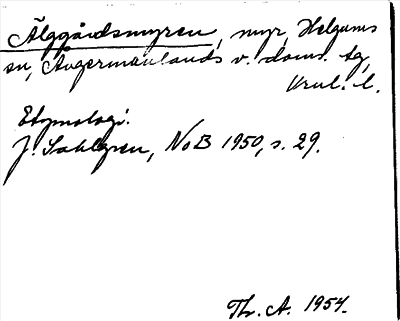 Älggårdsmyren, myr, Helgums
sn, Ångermanlands v. doms. tg,
Vnl. l.
Etymologi.
J. Sahlgren, NoB 1950, s. 29.
Th. A. 1954.